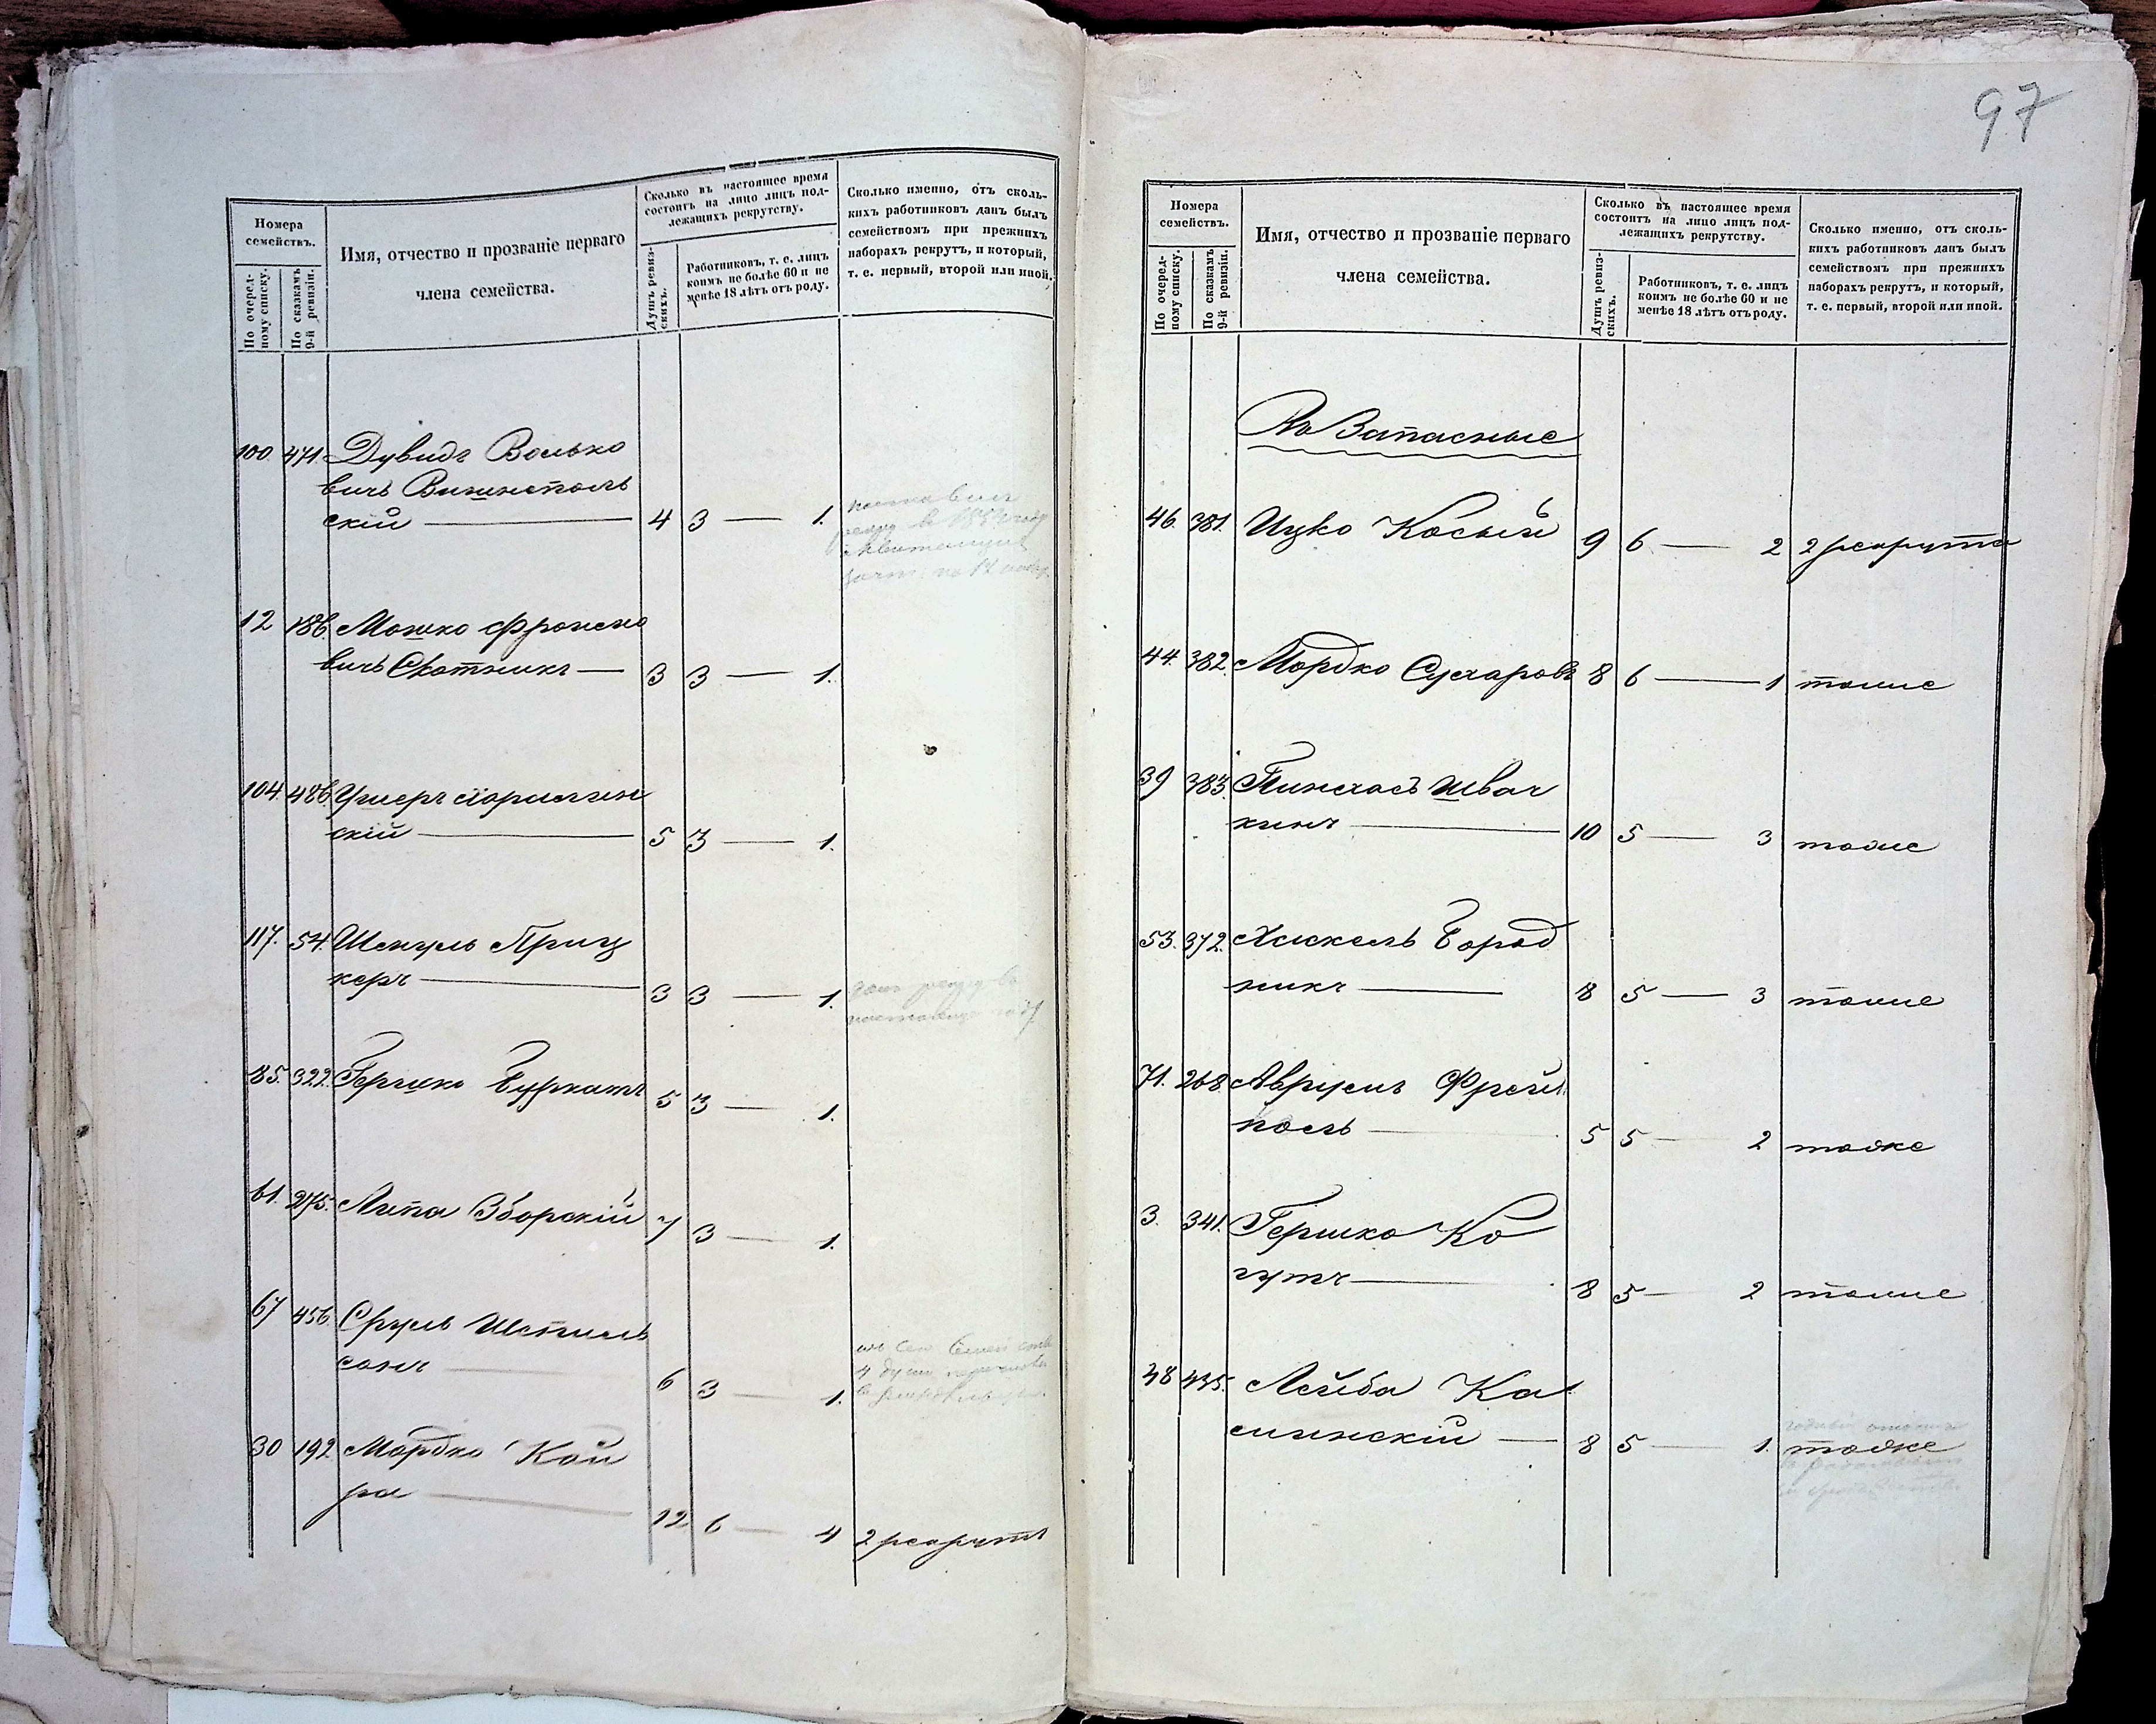 97
Номера
семействъ.
По очеред-
ному списку.
По сказкамъ
9-й ревизіи.
Имя, отчество и прозваніе перваго
члена семейства.
Сколько въ настоящее время
состоитъ на лицо лицъ под-
лежащихъ рекрутству.
Душъ ревиз-
скихъ.
Работниковъ, т. е. лицъ
коимъ не болѣе 60 и не
менѣе 18 лѣтъ отъ роду.
Сколько именно, отъ сколь-
кихъ работниковъ данъ былъ
семействомъ при прежнихъ
наборахъ рекрутъ, и который,
т. е. первый, второй или иной.
100 471. Дувидъ Волько
вичъ
скій — 4 3 — 1.
12 186. Мошко
вичъ Скотникъ — 3 3 — 1.
104. 486. Ушеръ
скій — 5 3 — 1.
117. 54. Приц
керъ — 3 3 — 1.
85. 322. Гершко Буркатъ 5 3 — 1.
61. 275. Липа Зборскій 7 3 — 1.
67 456. Сруль Шепсель
сонъ 6 3 — 1.
30 192. Мордко Кай
ра — 12 6 — 4 2 рекрутъ
Номера
семействъ.
По очеред-
ному списку.
По сказкамъ
9-й ревизіи.
Имя, отчество и прозваніе перваго
члена семейства.
Сколько въ настоящее время
состоитъ на лицо лицъ под-
лежащихъ рекрутству.
Душъ ревиз-
скихъ.
Работниковъ, т. е. лицъ
коимъ не болѣе 60 и не
менѣе 18 лѣтъ отъ роду.
Сколько именно, отъ сколь-
кихъ работниковъ данъ былъ
семействомъ при прежнихъ
наборахъ рекрутъ, и который,
т. е. первый, второй или иной.
Въ Запасные
46. 381. Ицко Косый 9 6 — 2 2 рекрута
44. 382. Мордко Сухаровъ 8 6 — 1 тоже
39 383. Пинхасъ Швач
кинъ — 10 5 — 3 тоже
53. 372. Хаскель Бород
никъ — 8 5 — 3 тоже
71. 268. Аврумъ Фрей
поль — 5 5 — 2 тоже
3. 341. Гершко Ко
гутъ — 8 5 — 2 тоже
48 435. Лейба Ка
скій — 8 5 — 1. тоже